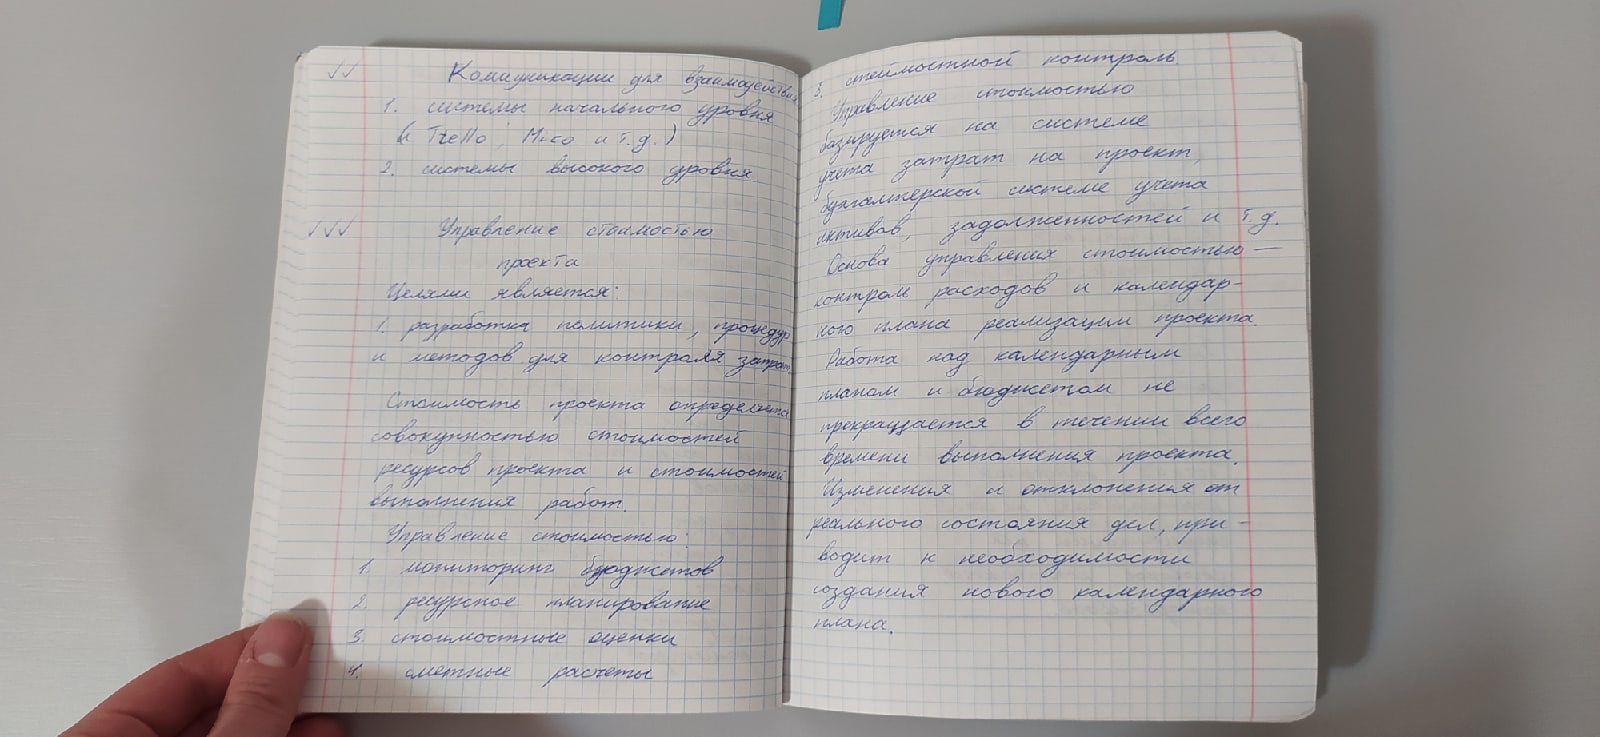 Коммуникации для взаимодействия
1. системы начального уровня
(Trello, Miro и т.д.)
2. системы высокого уровня
Управление стоимостью
проекта
Целями является:
1. разработка политики, процедур
и методов для контроля затрат.
Стоимость проекта определяется
совокупностью стоимостей
ресурсов проекта и стоимостей
выполнения работ.
Управление стоимостью:
1. мониторинг бюджетов
2. ресурсное планирование
3. стоимостные оценки
4. сметные расчеты
5. стоимостной контроль.
Управление стоимостью
базируется на системе
учета затрат на проект,
бухгалтерской системе учета
активов, задолженностей и т.д.
Основа управления стоимостью —
контроль расходов и календар-
ного плана реализации проекта.
Работа над календарным
планом и бюджетом не
прекращается в течении всего
времени выполнения проекта.
Изменения и отклонения от
реального состояния дел, при-
водит к необходимости
создания нового календарного
плана.